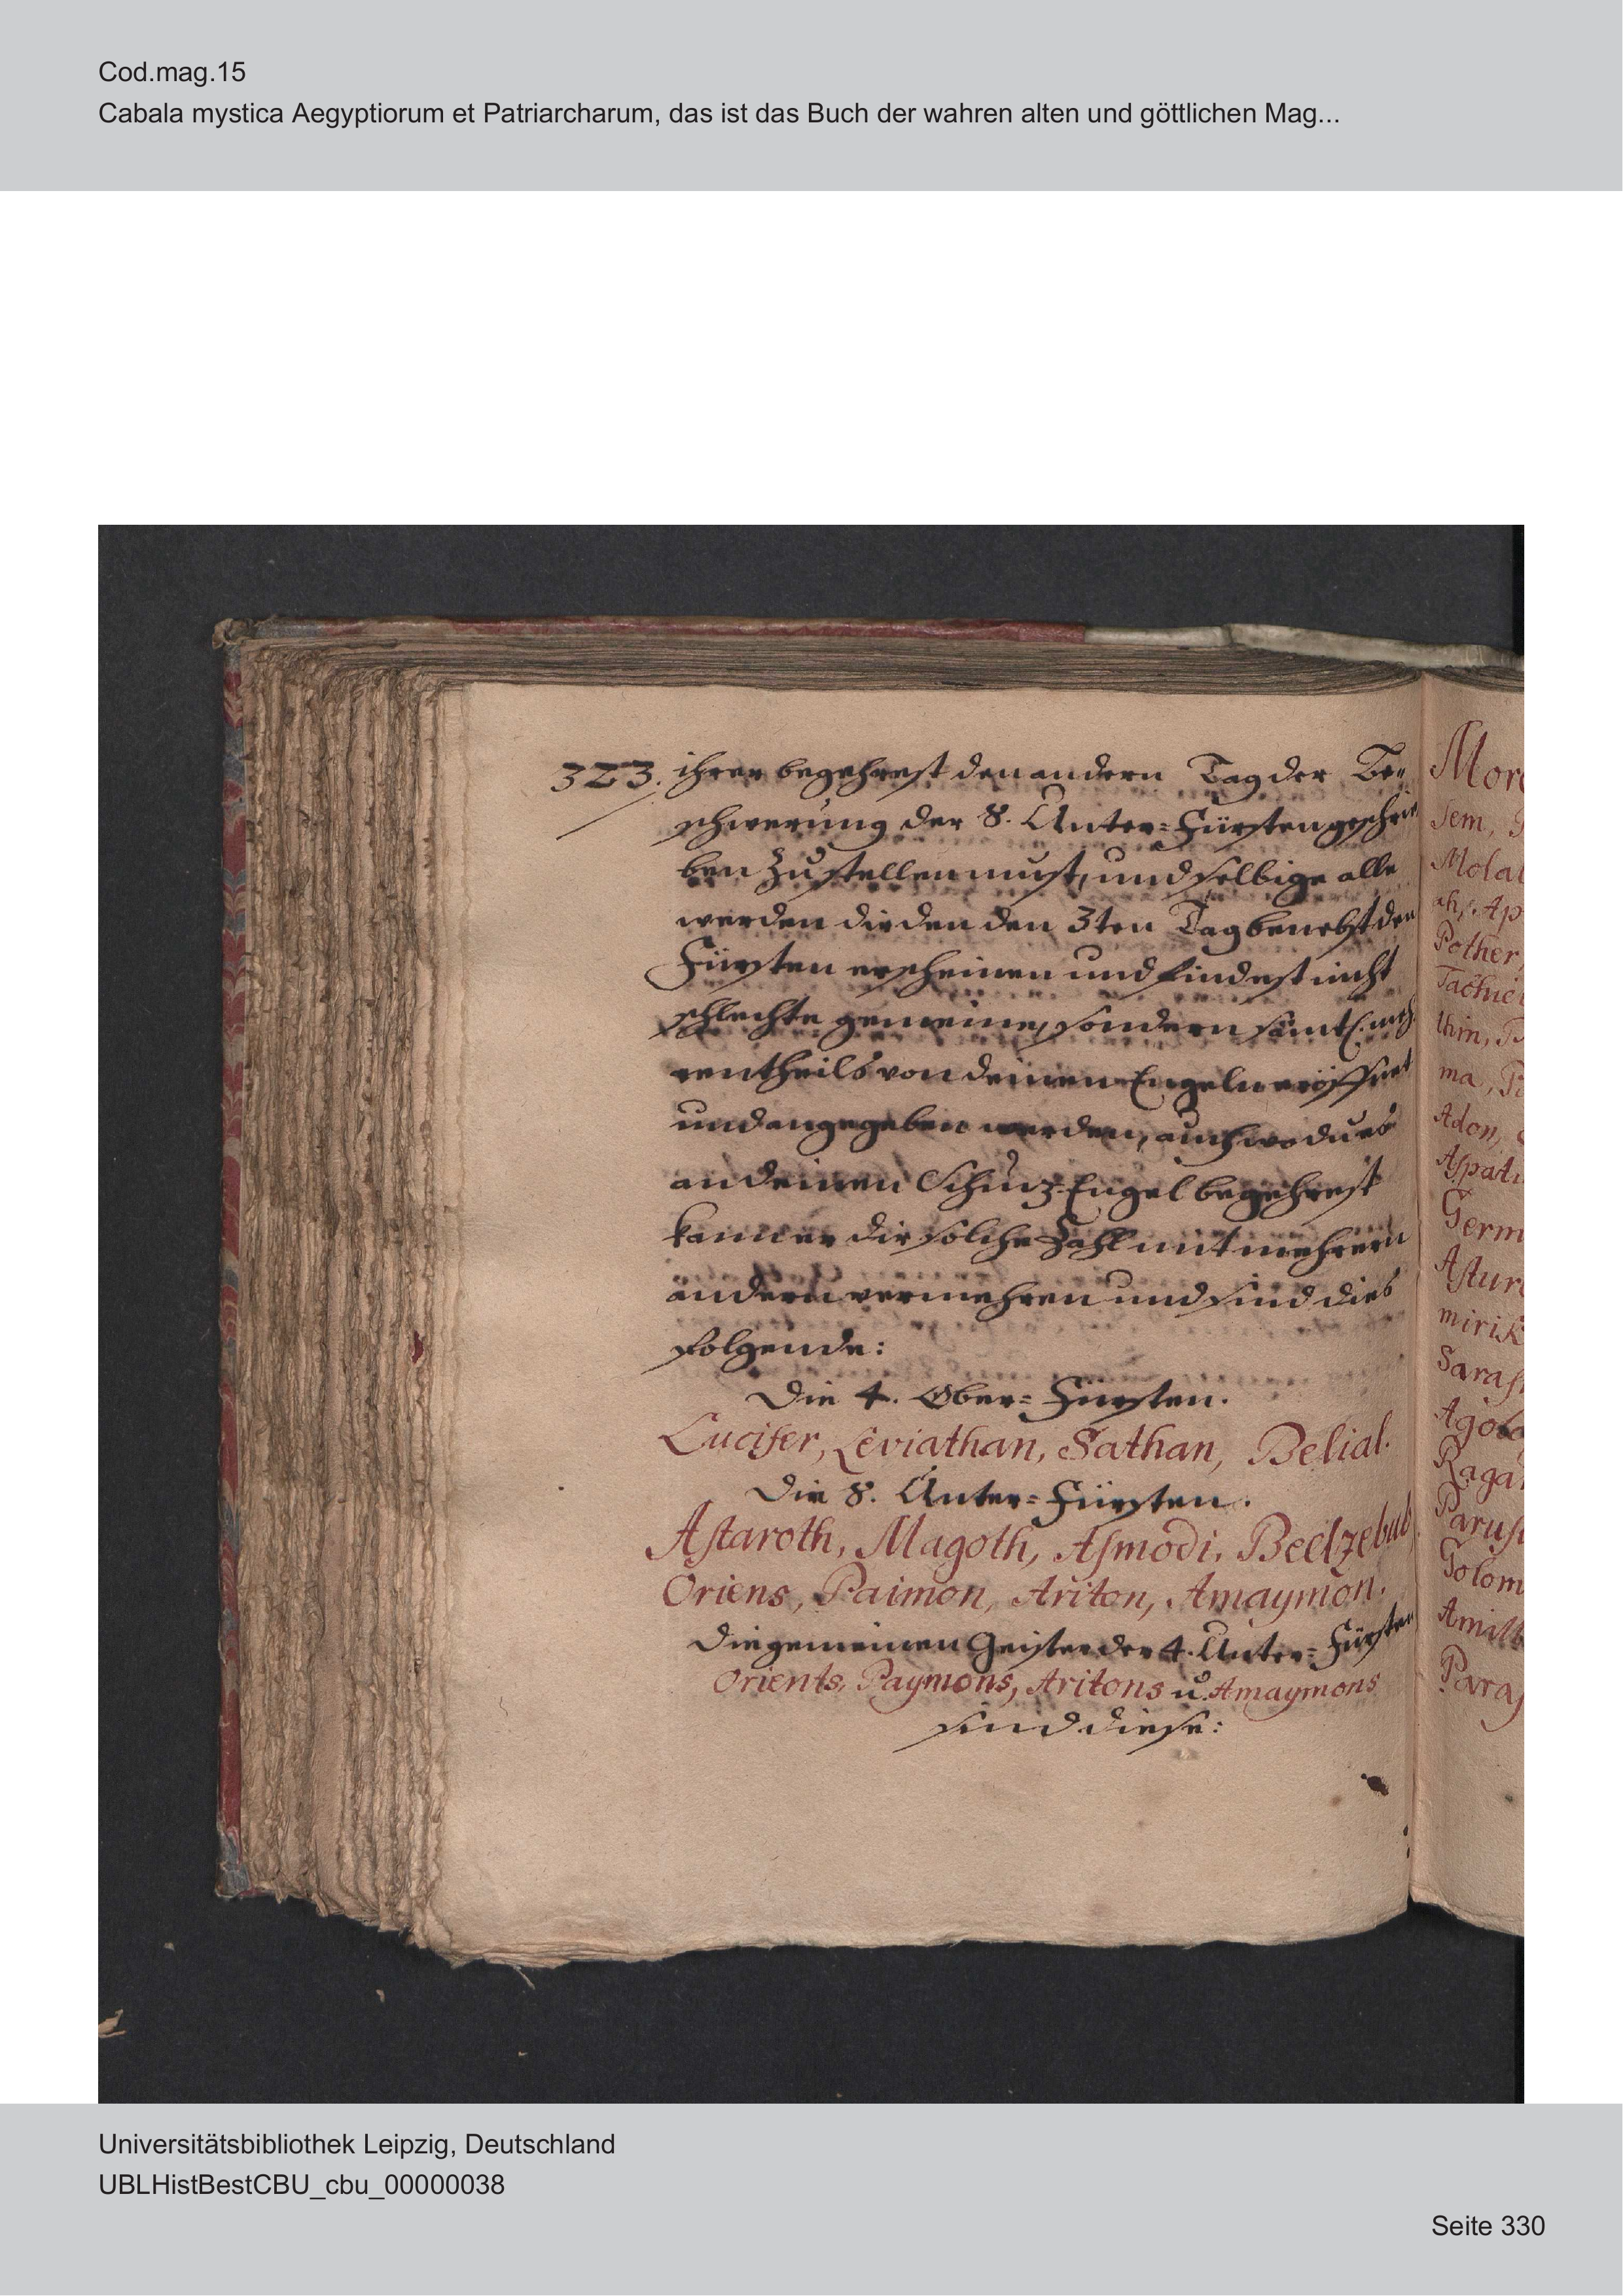 Cod.mag.15
Cabala mystica Aegyptiorum et Patriarcharum, das ist das Buch der wahren alten und göttlichen Mag...
323. ihrer begehrest den andern Tag der Be=
schwerung der 8. Unter=Fürsten geschrie
ben zu stellen must, und selbige alle
werden dir den den 3ten Tag benebst den
Fürsten erscheinen und sindest nicht
schlechte gemeine, sondern
rentheils von deinen Engeln eröffnet
und angegeben werden, auch wo du es
an deinen Schuz-Engel begehrest
kann er dir solche Zahl mit mehrern
andern vermehren und sind dies
folgende:
Die 4. Ober=Fürsten.
Lucifer, Leviathan, Sathan, Belial.
Die 8. Unter=Fürsten.
Astaroth, Magoth, Asmodi, Beelzebub
Oriens, Paimon, Ariton, Amaymon.
Die gemeinen Geister der 4. Unter=Fürsten
Orients, Paymons, Aritons u. Amaymons
sind diese:
Sem,
Pother,
ma,
Adon,
Universitätsbibliothek Leipzig, Deutschland
UBLHistBestCBU_cbu_00000038
Seite 330